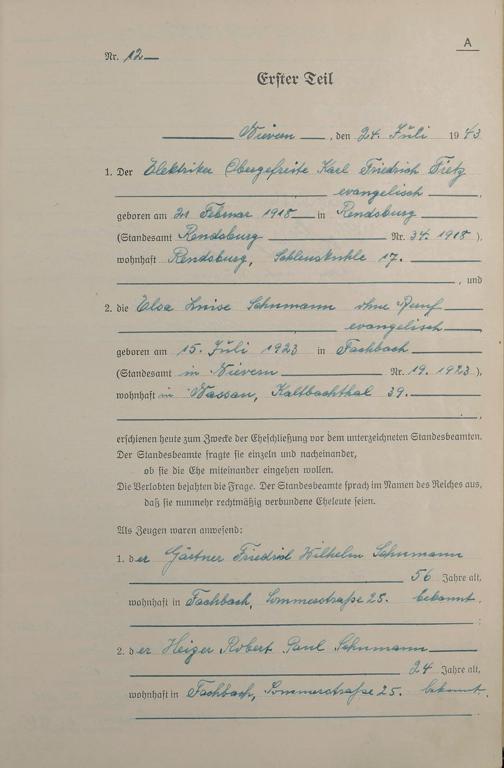 A
Nr. 12
Erster Teil
Nievern, den 24. Juli 1943
1. Der Elektriker Obergefreite Karl Friedrich Fietz
evangelisch,
geboren am 21. Februar 1918 in Rendsburg
(Standesamt Rendsburg Nr. 34. 1918),
wohnhaft Rendsburg, Schleuskuhle 17.
, und
2. die Elsa Luise Schumann ohne Beruf
evangelisch,
geboren am 15. Juli 1923 in Fachbach
(Standesamt in Nievern Nr. 19. 1923),
wohnhaft in Nassau, Kaltbachthal 39.
,
erschienen heute zum Zwecke der Eheschließung vor dem unterzeichneten Standesbeamten.
Der Standesbeamte fragte sie einzeln und nacheinander,
ob sie die Ehe miteinander eingehen wollen.
Die Verlobten bejahten die Frage. Der Standesbeamte sprach im Namen des Reiches aus,
daß sie nunmehr rechtmäßig verbundene Eheleute seien.
Als Zeugen waren anwesend:
1. der Gärtner Friedrich Wilhelm Schumann
56 Jahre alt,
wohnhaft in Fachbach, Sommerstraße 25. bekannt.
;
2. der Heizer Robert Paul Schumann
24 Jahre alt,
wohnhaft in Fachbach, Sommerstraße 25. bekannt.
.